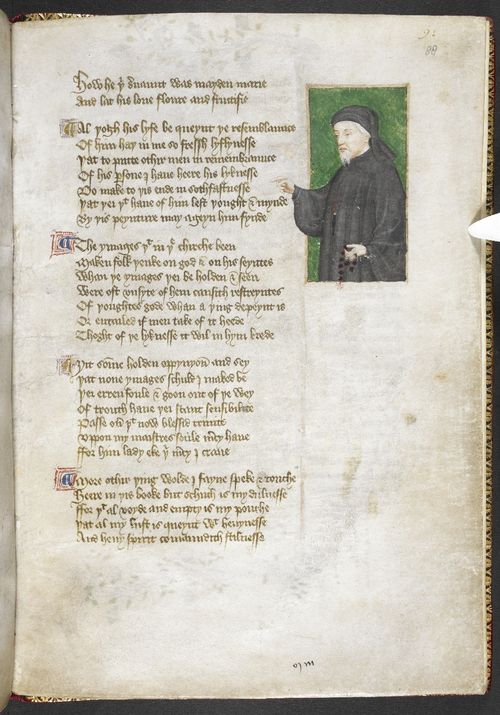 How he þⁱ seruaunt was mayden marie
And lat his loue floure and fructifie
Al þogh his lyfe be queynt þe resemblaunce
Of him haþ in me so fressh lyflynesse
Þat to putte othir men in remembraunce
Of his persone I haue heere his lyknesse
Do make to þis ende in sothfastnesse
Þat þei þᵗ haue of him lest þought & mynde
By þis peynture may ageyn him fynde
The ymages þᵗ in þᵉ chirche been
Maken folk þenke on god & on his seyntes
Whan þe ymages þei beholden & seen
Were oft unsyte of hem causith restreyntes
Of þoughtes gode whan a þing depeynt is
Or entailed if men take of it heede
Thoght of þe lyknesse it wil in hym brede
Yit somme holden oppynyoun and sey
Þat none ymages schuld I maked be
Þei erren foule & goon out of þe wey
Of trouth haue þei scant sensibilite
Passe ouer þᵗ now blessid trinite
Vppon my maistres soule mercy haue
ffor him lady eke þⁱ mercy I craue
More othir þing wolde I fayne speke & touche
Heere in þis booke but schuch is my dulnesse
ffor þᵗ al voyde and empty is my pouche
Þat al my lust is queynt wᵗ heuynesse
And heuy spirit comaundith stilnesse
88